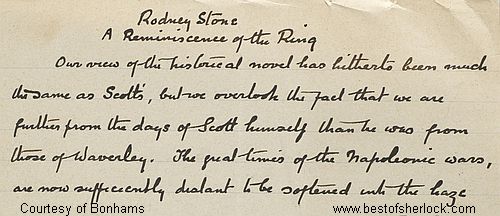 Rodney Stone
A Reminiscence of the Ring
Our view of the historical novel has hitherto been much
the same as Scott's, but we overlook the fact that we are
further from the days of Scott himself than he was from
those of Waverley. The great times of the Napoleonic wars,
are now sufficiently distant to be softened into the haze
Courtesy of Bonhams
www.bestofsherlock.com